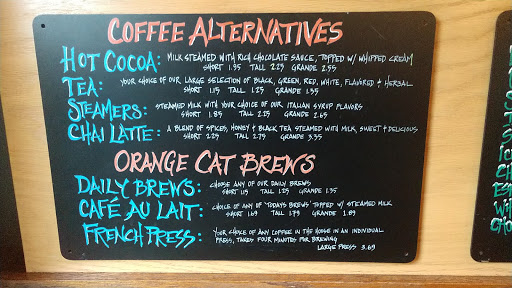 COFFEE ALTERNATIVES
HOT COCOA: MILK STEAMED WITH RICH CHOCOLATE SAUCE, TOPPED W/ WHIPPED CREAM
SHORT 1.95 TALL 2.25 GRANDE 2.55
TEA: YOUR CHOICE OF OUR LARGE SELECTION OF BLACK, GREEN, RED, WHITE, FLAVORED & HERBAL
SHORT 1.15 TALL 1.25 GRANDE 1.35
STEAMERS: STEAMED MILK WITH YOUR CHOICE OF OUR ITALIAN SYRUP FLAVORS
SHORT 1.85 TALL 2.25 GRANDE 2.65
CHAI LATTE: A BLEND OF SPICES, HONEY & BLACK TEA STEAMED WITH MILK, SWEET & DELICIOUS
SHORT 2.25 TALL 2.75 GRANDE 3.35
ORANGE CAT BREWS
DAILY BREWS: CHOOSE ANY OF OUR DAILY BREWS
SHORT 1.15 TALL 1.25 GRANDE 1.35
CAFÉ AU LAIT: CHOICE OF ANY OF 'TODAYS BREWS' TOPPED W/ STEAMED MILK
SHORT 1.69 TALL 1.79 GRANDE 1.89
FRENCH PRESS: YOUR CHOICE OF ANY COFFEE IN THE HOUSE IN AN INDIVIDUAL
PRESS, TAKES FOUR MINUTES FOR BREWING
LARGE PRESS 3.69